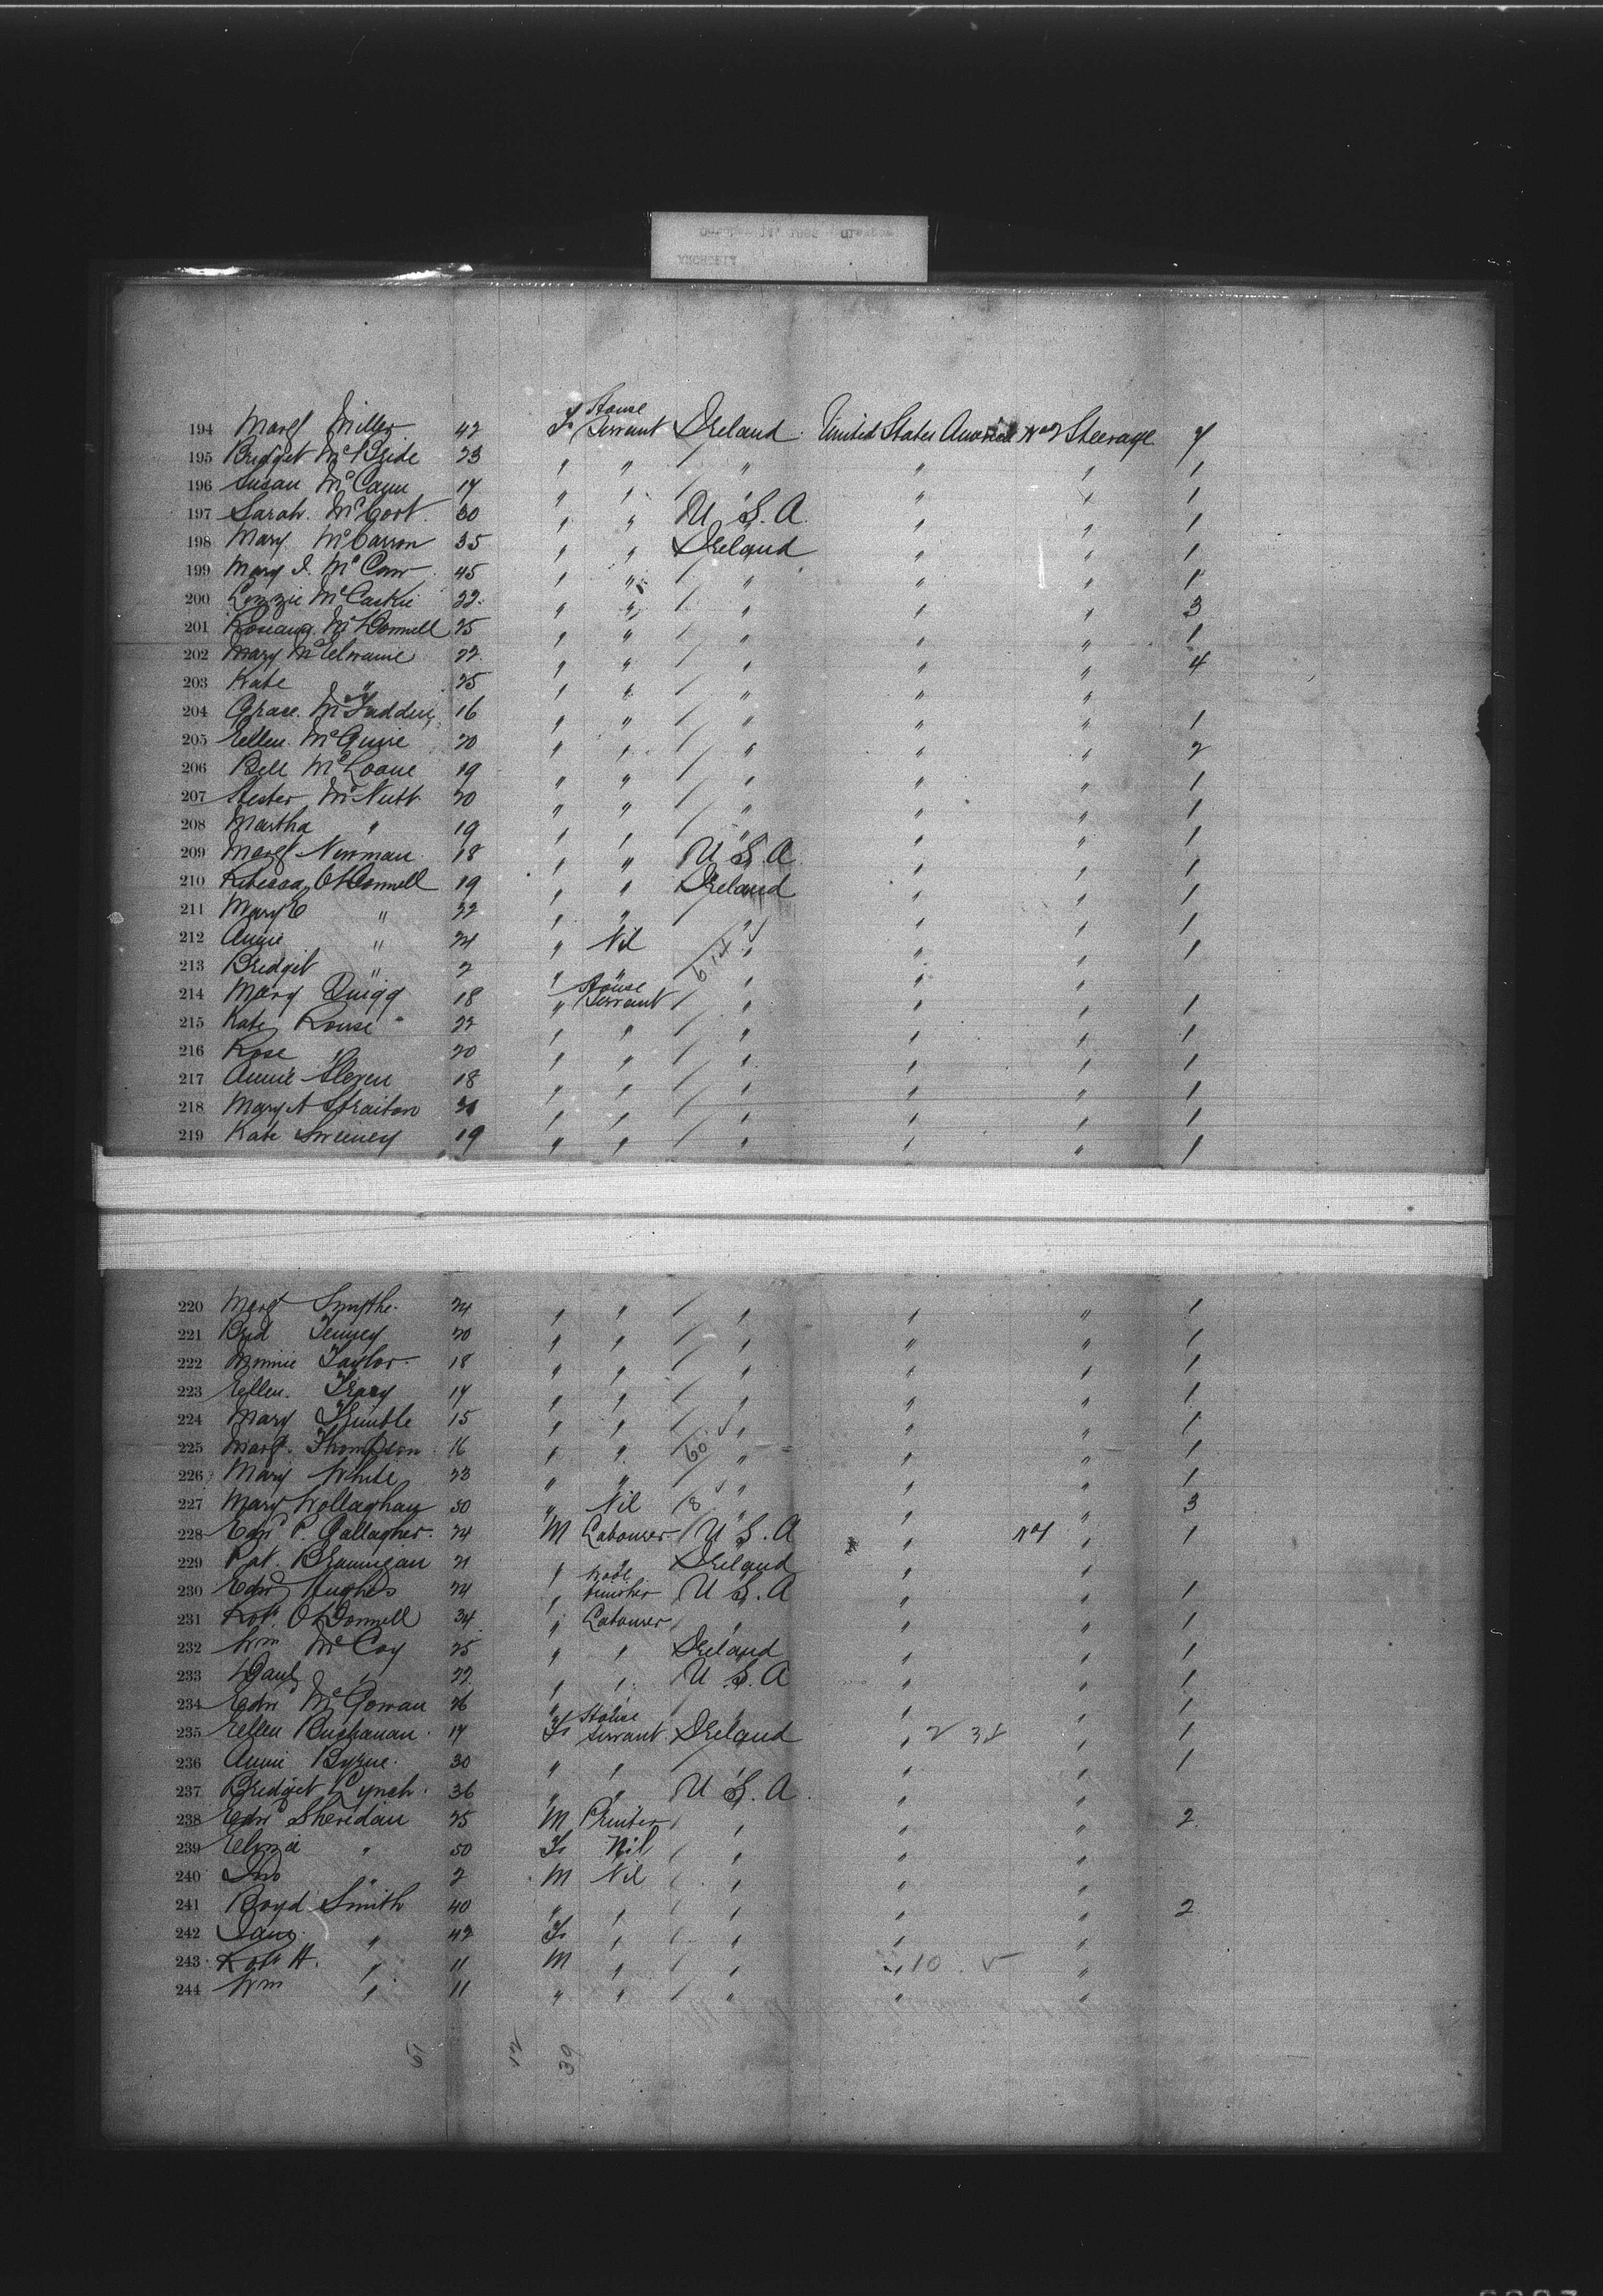 194 Margt Miller 42 F House Servant Ireland United States America No 2 Steerage
195 Bridget McBride 23 " " " " " 1
196 Susan McCann 17 " " " " " 1
197 Sarah McCort 30 " " U.S.A. " " 1
198 Mary McCarron 35 " " Ireland " " 1
199 Mary J. McCaw 45 " " " " " 1
200 Lizzie McCaskie 22 " " " " " 3
201 McDonnell 25 " " " " " 1
202 Mary McElwaine 22 " " " " " 4
203 Kate " 25 " " " " "
204 Grace McFadden 16 " " " " " 1
205 Ellen McGuire 20 " " " " " 2
206 Bell McLoane 19 " " " " " 1
207 Hester McNutt 20 " " " " " 1
208 Martha " 19 " " " " " 1
209 Margt Newman 18 " " U.S.A. " " 1
210 Rebecca O'Donnell 19 " " Ireland " " 1
211 Mary E " 22 " " " " " 1
212 Annie " 24 " Nil " " " 1
213 Bridget " 2 " " " " "
214 Mary Quigg 18 " House Servant " " " 1
215 Kate Rouse 22 " " " " " 1
216 Rose " 20 " " " " " 1
217 Annie Sleven 18 " " " " " 1
218 Mary A Straiton " " " " " 1
219 Kate Sweeney 19 " " " " " 1
220 Margt Smythe 24 " " " " " 1
221 Brid 20 " " " " " 1
222 Minnie Taylor 18 " " " " " 1
223 Ellen Tracy 17 " " " " " 1
224 Mary Trimble 15 " " " " " 1
225 Margt. Thompson 16 " " 60 " " " 1
226 Mary White 23 " " " " " 1
227 Mary Wollaghan 50 " Nil 8 " " " 3
228 Edwd P. Gallagher 24 M Labourer U.S.A " No 1 " 1
229 Pat. Brannigan 21 " " Ireland " "
230 Edwd Hughes 24 " finisher U.S.A " " 1
231 Robt. O'Donnell 34 " Labourer " " " 1
232 Wm McCoy 25 " " Ireland " " 1
233 Danl " 22 " " U.S.A " " 1
234 Edwd McGowan 26 " " " " " 1
235 Ellen Buchanan 17 F House Servant Ireland " " 1
236 Annie Byrne 30 " " " " " 1
237 Bridget Lynch 36 " " U.S.A. " "
238 Edwd Sheridan 25 M Printer " " " 2
239 Eliza " 50 F Nil " " "
240 Jno " 2 M Nil " " "
241 Boyd Smith 40 " " " " " 2
242 Jane " 42 F " " " "
243 Robt H. " 11 M " " " 10 "
244 Wm " 11 " " " " "
51 12 39